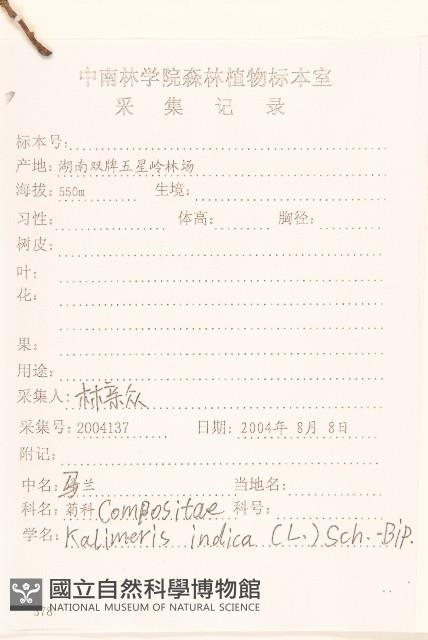 中南林学院森林植物标本室
采集记录
标本号:
产地: 湖南双牌五星岭林场
海拔: 550m 生境:
习性: 体高: 胸径:
树皮:
叶:
花:
果:
用途:
采集人: 林亲众
采集号: 2004137 日期: 2004年 8月 8日
附记:
中名: 马兰 当地名:
科名: 菊科 Compositae 科号:
学名: Kalimeris indica (L.) Sch.-Bip.
國立自然科學博物館
NATIONAL MUSEUM OF NATURAL SCIENCE
378